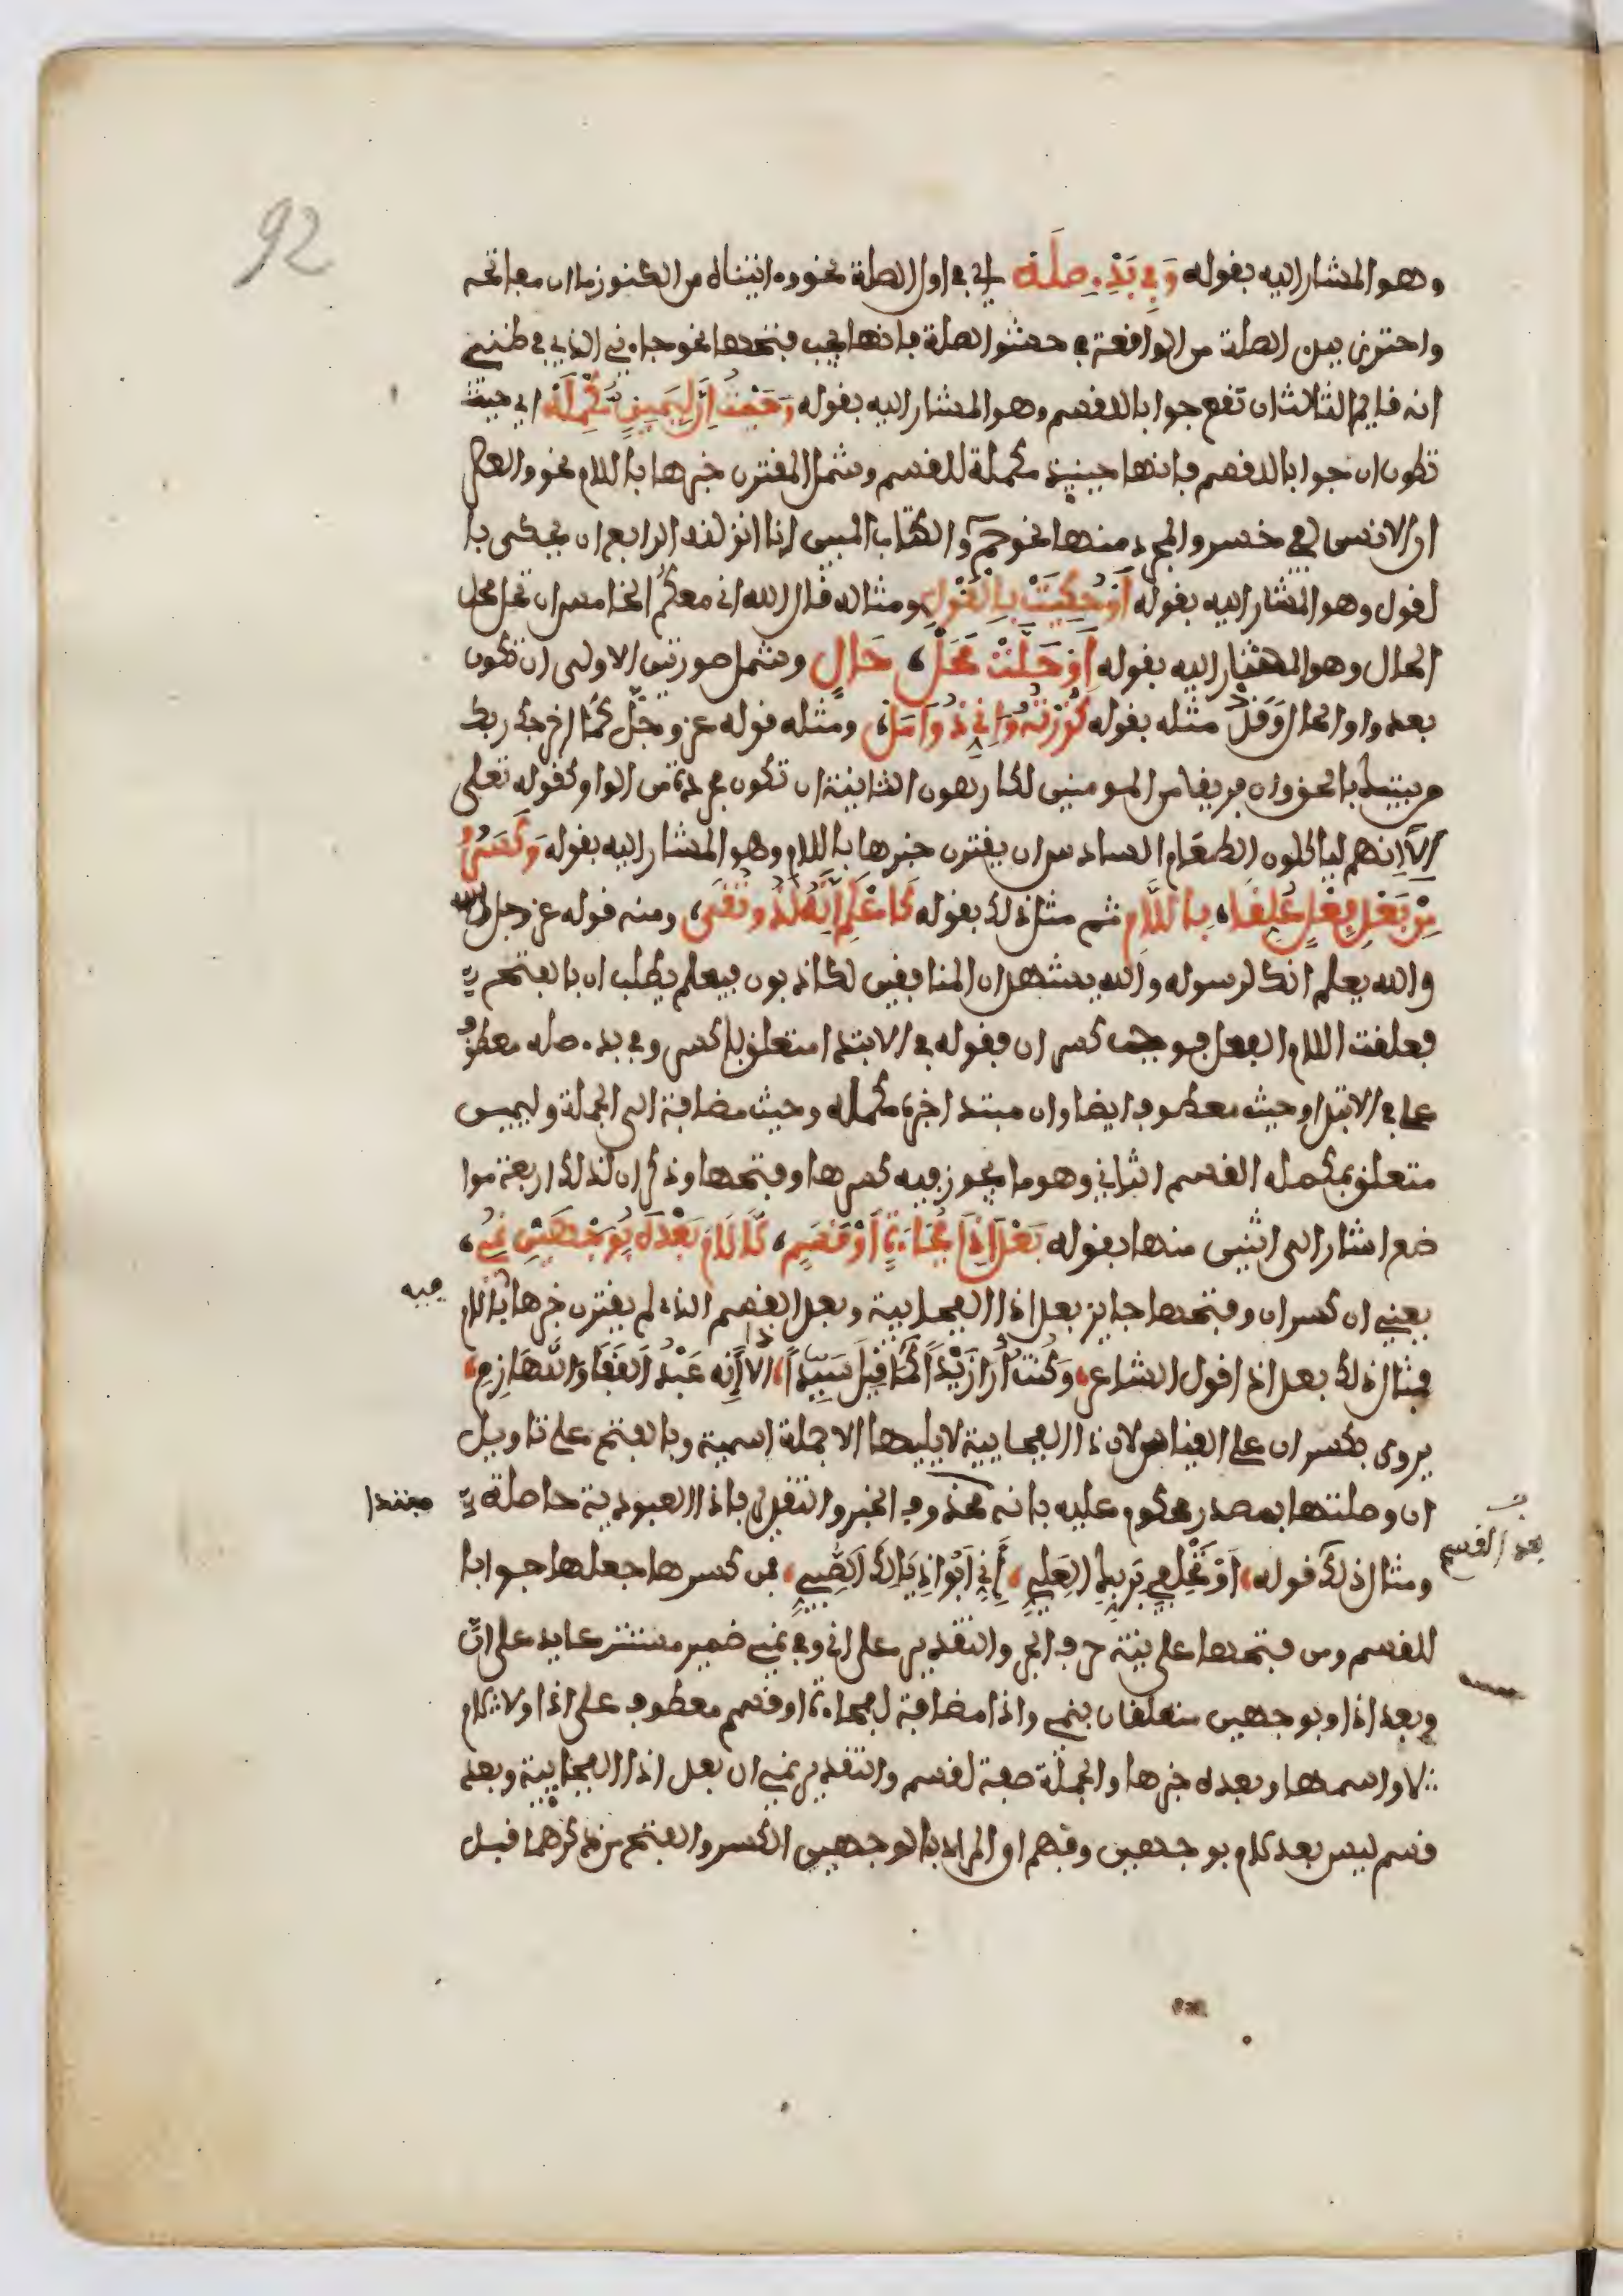 92
وهو المشار اليه بقوله وَفِي بَدْءِ صِلَهْ اي في اول الصلة نحو وءاتيناه من الكنوز ما ان مفاتحه
واحترز ببدء الصلة من الواقعة في حشو الصلة فانها يجب فتحها نحو جاءني الذي في ظني
انه قايم الثالث ان تقع جوابا للقسم وهو المشار اليه بقوله وَحَيْثُ إِنَّ لِيَمِينٍ مُكْمِلَهْ اي حيث
تكون ان جوابا للقسم فانها حينيذ مكملة للقسم وشمل المقترن خبرها باللام نحو والعصر
ان الانسن لفي خسر والمجرد منها نحو حم والكتاب المبين انا انزلنه الرابع ان يحكى با
لقول وهو المشار اليه بقوله أَوْ حُكِيَتْ بِالْقَوْلِ ومثاله قال الله اني معكم الخامس ان تحل محل
الحال وهو المشار اليه بقوله أَوْ حَلَّتْ مَحَلَّ، حَالٍ وشمل صورتين الاولى ان تكون
بعد واو الحال وَقَدْ مثله بقوله كَزُرْتُهُ وَإِنِّي ذُو أَمَلْ، ومثله قوله عز وجلّ كما اخرجك ربك
من بيتك بالحق وان فريقا من المومنين لكارهون الثانية ان تكون مجردة من الواو كقوله تعلى
الا إنهم لياكلون الطعام السادس ان يقترن خبرها باللام وهو المشار اليه بقوله وَكَسَرُوا
مِنْ بَعْدِ فِعْلٍ عُلِّقَا، بِاللَّامِ ثم مثل ذلك بقوله كَاعْلَمْ إِنَّهُ لَذُو تُقَى، ومنه قوله عز وجل
والله يعلم انك لرسوله والله يشهد ان المنافقين لكاذبون فيعلم يطلب ان بالفتح
فعلقت اللام الفعل فوجب كسر ان فقوله في الابتدا متعلق باكسر وفي بدء صله معطوف
على في الابتدا وحيث معطوف ايضا وان مبتدا خبره مكمله وحيث مضافة الى الجملة وليمين
متعلق بمكمله القسم الثاني وهو ما يجوز فيه كسرها وفتحها وذكر ان لذلك اربعة موا
ضع اشار الى اثنين منها بقوله بَعْدَ إِذَا فُجَاءَةٍ أَوْ قَسَمِ، لَا لَامَ بَعْدَهُ بِوَجْهَيْنِ نُمِي،
يعني ان كسر ان وفتحها جايز بعد اذا الفجايية وبعد القسم الذي لم يقترن خبرها باللام
فيه
فمثال ذلك بعد اذا قول الشاعر، وَكُنْتُ أُرَا زَيْدًا كَمَا قِيلَ سَيِّدًا، إذا إِنَّه عَبْدُ الْقَفَا وَاللَّهَازِمِ،
يروى بكسر ان على القياس لان اذا الفجايية لا يليها الا جملة اسمية وبالفتح على تاويل
ان وصلتها بمصدر محكوم عليه بانه محذوف الخبر والتقدير فاذا العبودية حاصلة
مبتدا
ومثال ذلك قوله، أَوْ تَحْلِفِي بِرَبِّكِ الْعَلِيِّ، أَنِّي أَبُو ذَيَّالِكِ الصَّبِيِّ، فمن كسرها جعلها جوابا
بعد القسم
للقسم ومن فتحها على نية حرف الجر والتقدير على اني وفي نمي ضمير مستتر عايد على انّ
وبعد اذا وبوجهين متعلقان بنمي واذا مضافة لفجاءة او قسم معطوف على اذا ولا لام
لا واسمها وبعده خبرها والجملة صفة لقسم والتقدير نمي ان بعد اذا الفجايية وبعد
قسم ليس بعده لام بوجهين وفهم ان المراد بالوجهين الكسر والفتح من ذكرهما قبل